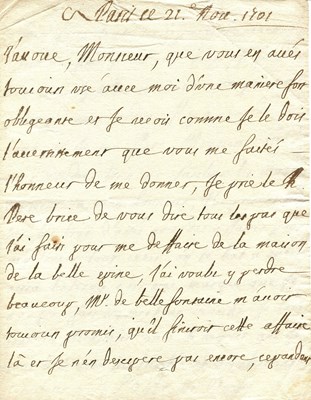 A Paris ce 21.e Nov. 1701
J'auoue, Monsieur, que vous en aués
toujours vsé auec moi d'vne maniere fort
obligeante et Je recois comme Je le dois
l'auertissement que vous me faités
l'honneur de me donner, Je prie le
Pere brice de vous dire tous les pas que
J'ai faits pour me deffaire de la maison
de la belle epine, J'ai voulu y perdre
beaucoup, Mr. de bellefontaine m'auoit
toujours promis, qu'il finiroit cette affaire
là et Je n'en desespere pas encore, cependant